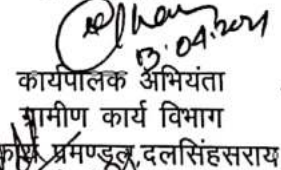 13.04.2021
कार्यपालक अभियंता
ग्रामीण कार्य विभाग
कार्य प्रमण्डल,दलसिंहसराय